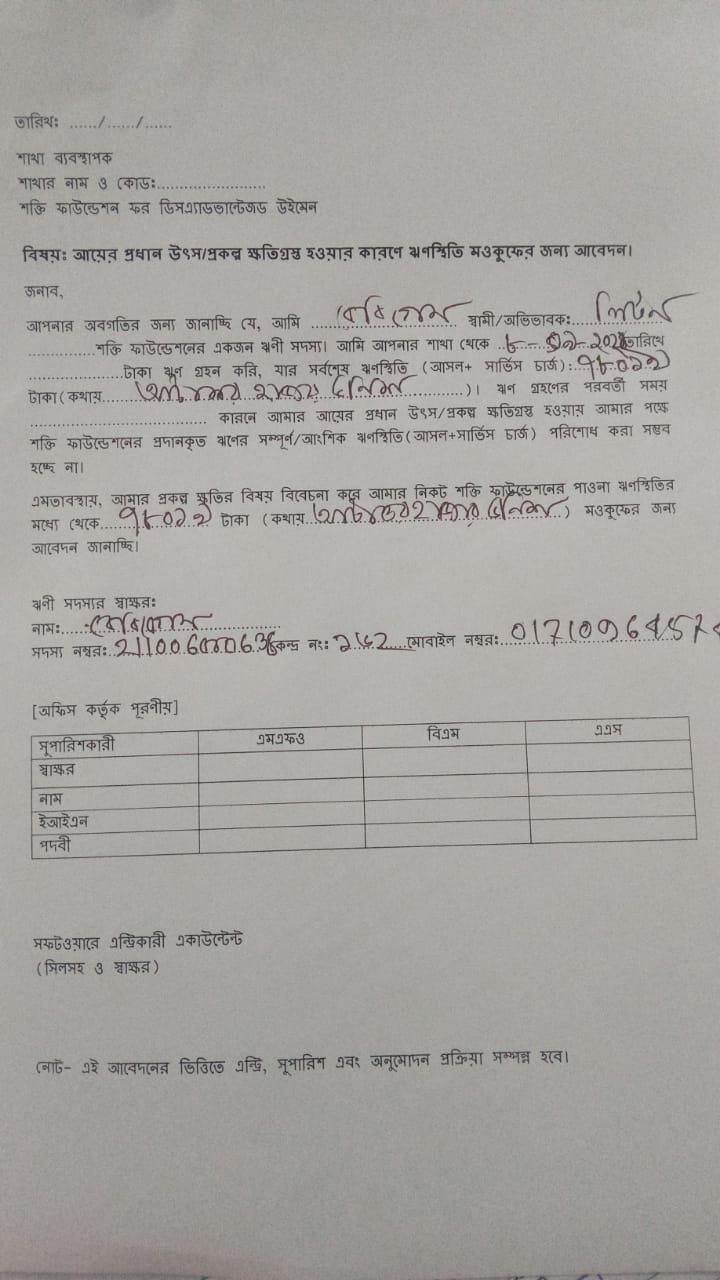 তারিখ: ....../....../......
শাখা ব্যবস্থাপক
শাখার নাম ও কোড:........................
শক্তি ফাউন্ডেশন ফর ডিসএ্যাডভান্টেজড উইমেন
বিষয়: আয়ের প্রধান উৎস/প্রকল্প ক্ষতিগ্রস্ত হওয়ার কারনে ঋনস্থিতি মওকুফের জন্য আবেদন।
জনাব,
আপনার অবগতির জন্য জানাচ্ছি যে, আমি ................................ স্বামী/অভিভাবক: লিটন
..............শক্তি ফাউন্ডেশনের একজন ঋনী সদস্য। আমি আপনার শাখা থেকে তারিখে
.....................টাকা ঋন গ্রহন করি, যার সর্বশেষ ঋনস্থিতি (আসল+ সার্ভিস চার্জ):
টাকা(কথায় হাজার )। ঋন গ্রহনের পরবর্তী সময়
....................................... কারনে আমার আয়ের প্রধান উৎস/প্রকল্প ক্ষতিগ্রস্ত হওয়ায় আমার পক্ষে
শক্তি ফাউন্ডেশনের প্রদানকৃত ঋনের সম্পূর্ন/আংশিক ঋনস্থিতি(আসল+সার্ভিস চার্জ) পরিশোধ করা সম্ভব
হচ্ছে না।
এমতাবস্থায়, আমার প্রকল্প ক্ষতির বিষয় বিবেচনা করে আমার নিকট শক্তি ফাউন্ডেশনের পাওনা ঋনস্থিতির
মধ্যে থেকে টাকা (কথায় ) মওকুফের জন্য
আবেদন জানাচ্ছি।
ঋনী সদস্যের স্বাক্ষর:
নাম:
সদস্য নম্বর: কেন্দ্র নং: মোবাইল নম্বর:
[অফিস কর্তৃক পূরনীয়]
সুপারিশকারী এমএফও বিএম এএস
স্বাক্ষর
নাম
ইআইএন
পদবী
সফটওয়ারে এন্ট্রিকারী একাউন্টেন্ট
(সিলসহ ও স্বাক্ষর)
নোট- এই আবেদনের ভিত্তিতে এন্ট্রি, সুপারিশ এবং অনুমোদন প্রক্রিয়া সম্পন্ন হবে।